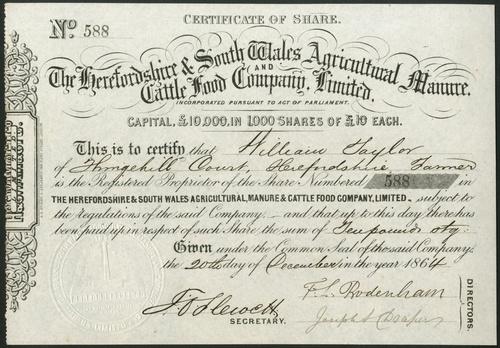 CERTIFICATE OF SHARE.
No. 588
The Herefordshire & South Wales Agricultural Manure.
AND
Cattle Food Company, Limited.
INCORPORATED PURSUANT TO ACT OF PARLIAMENT.
CAPITAL, £10,000, IN 1,000 SHARES OF £10 EACH.
This is to certify that William Taylor
of Thingehill Court, Herefordshire Farmer
is the Registered Proprietor of the Share Numbered 588 in
THE HEREFORDSHIRE & SOUTH WALES AGRICULTURAL, MANURE & CATTLE FOOD COMPANY, LIMITED, subject to
the regulations of the said Company - and that up to this day there has
been paid up in respect of such Share the sum of Ten pounds
Given under the Common Seal of the said Company,
the 20th day of December in the year 1864
SECRETARY.
F. L. Bodenham
Joseph Draper
DIRECTORS.